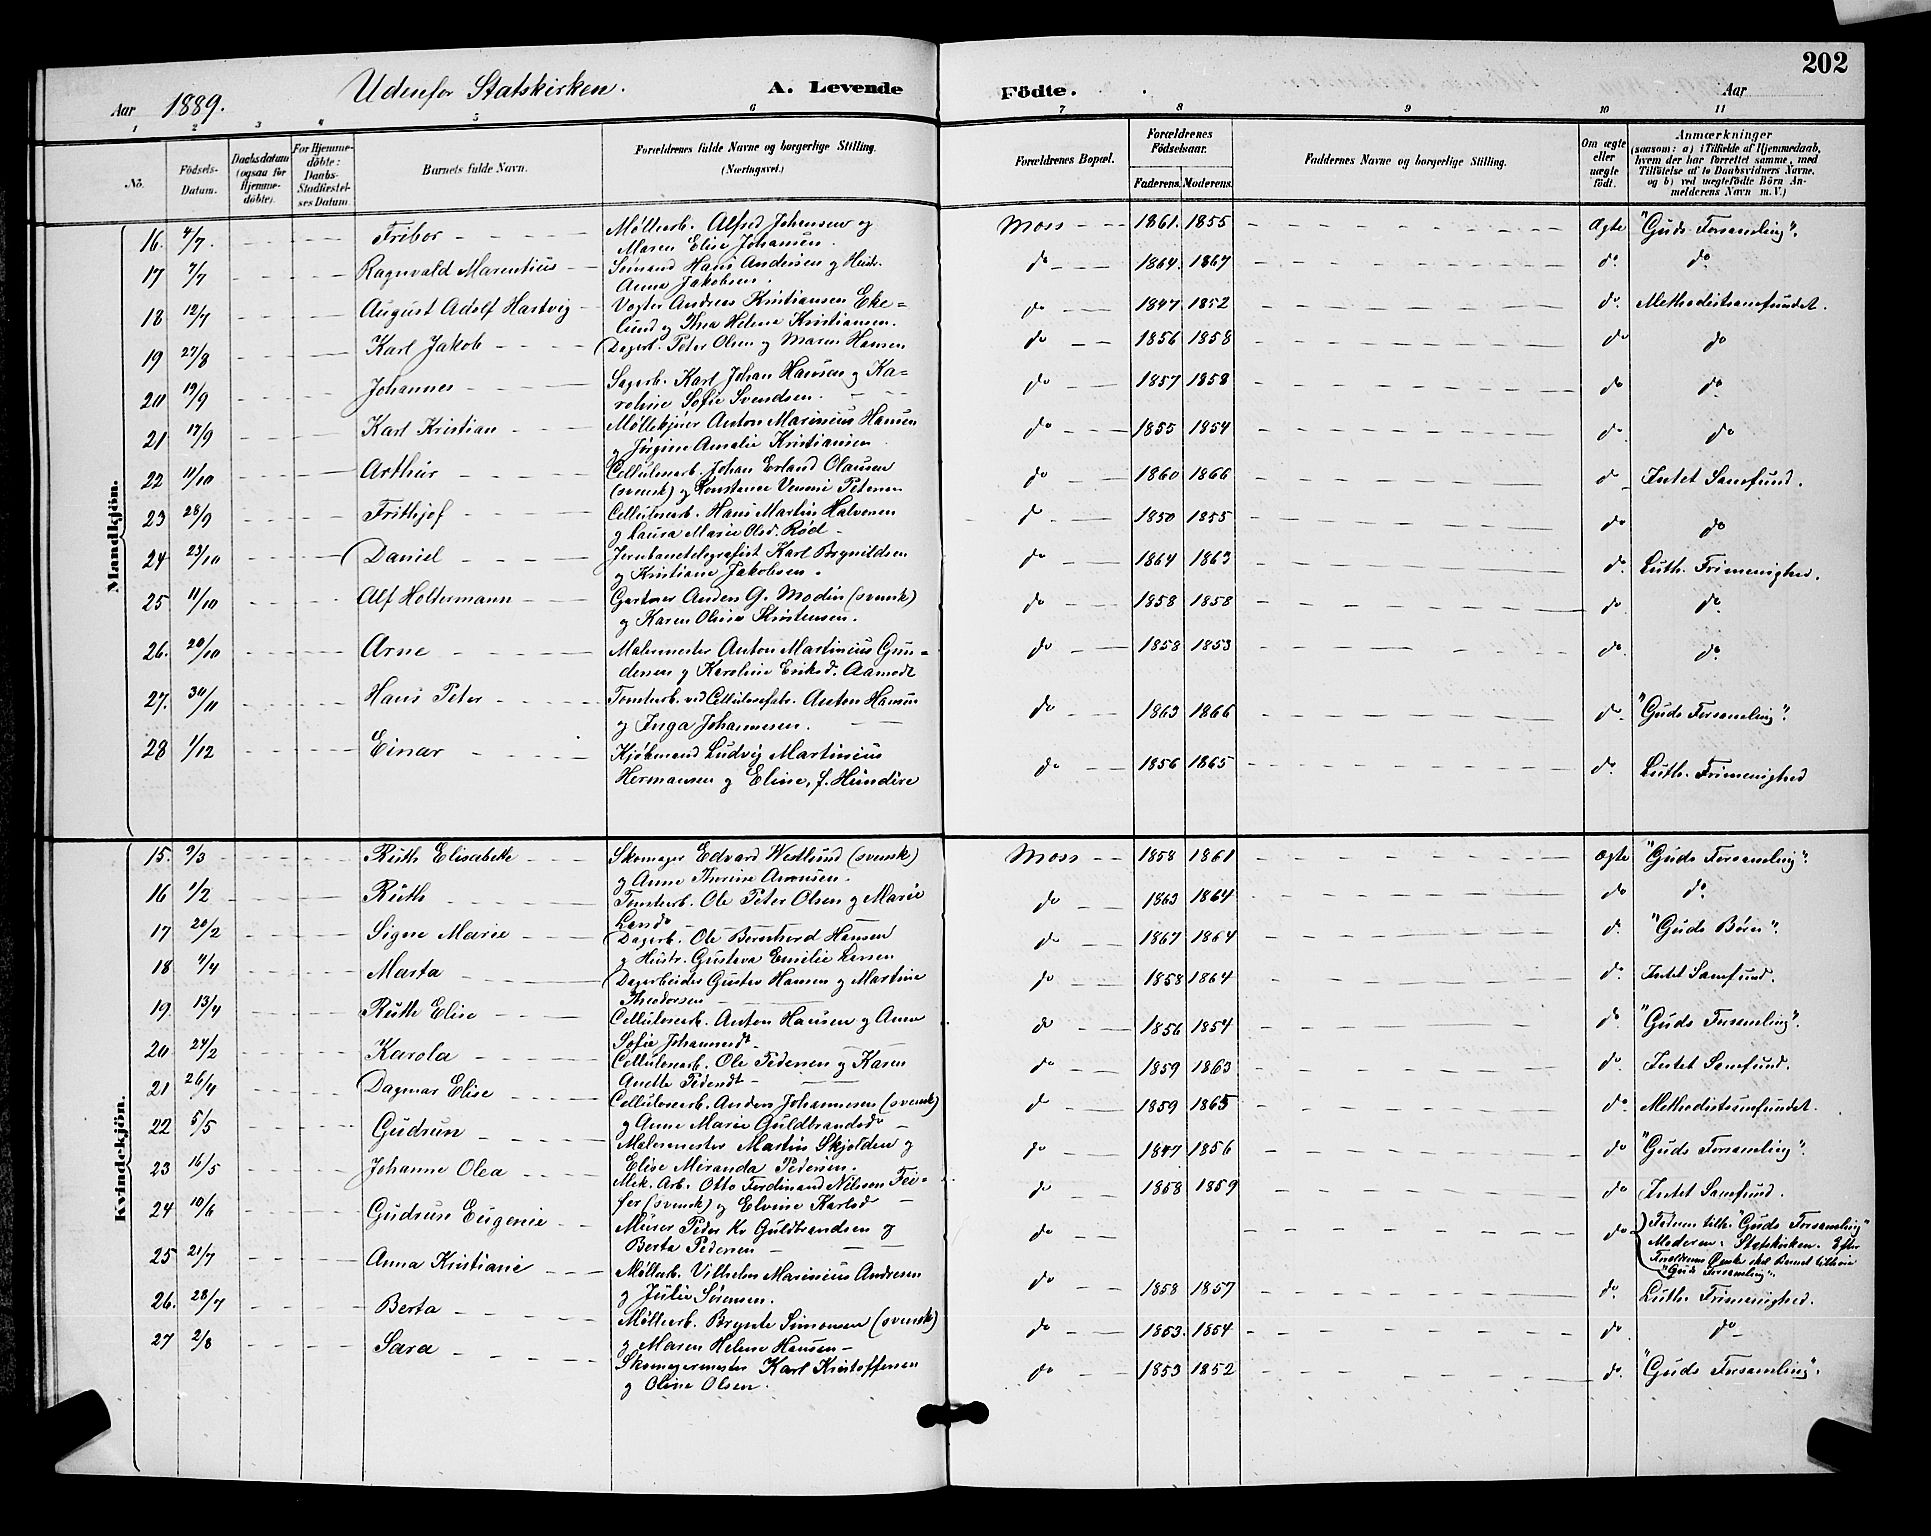 202
Udenfor Statskirken.
A. Levende Födte.
Aar 1889.
Aar
1 2 3 4 5 6 7 8 9 10 11
No.
Födsels-Datum.
Daabsdatum (ogsaa for Hjemme-döbte).
For Hjemme-döbte: Daabs-Stadfæstel-ses Datum.
Barnets fulde Navn.
Forældrenes fulde Navne og borgerlige Stilling.
(Næringsvei.)
Forældrenes Bopæl.
Forældrenes Födselsaar.
Faderens. Moderens.
Faddernes Navne og borgerlige Stilling.
Om ægte eller uægte födt.
Anmærkninger
(saasom: a) i Tilfælde af Hjemmedaab, hvem der har forrettet samme, med Tilföielse af to Daabsvidners Navne, og b) ved uægtefödte Börn An-melderens Navn m. V.)
Mandkjön.
16. 4/7. Fribor Möllerarb. Alfred Johansen og Moss 1861. 1855 Ægte "Guds Forsamling".
Maren Elise Johansen.
17 7/7 Ragnvald Marentius Sömand Hans Andersen og Hustr. do 1864. 1867 do. do.
Anna Jakobsen.
18 12/7 August Adolf Hartvig Vogter Andreas Kristiansen Eke= do 1847 1852 do. Methodistsamfundet.
lund og Thea Helene Kristiansen.
19 27/8 Karl Jakob Dagarb. Peter Olsen og Maren Hansen do 1856 1858 do do
20 19/9 Johannes Sagarb. Karl Johan Hansen og Ka= do 1857 1858 do do
roline Sofie Svendsen.
21 17/9 Karl Kristian Möllekjörer Anton Marinius Hansen do 1855 1854 do. do
og Jörgine Amalie Kristiansen
22 11/10 Arthur Cellulosearb. Johan Erland Olausen do 1860 1866 do Intet Samfund.
(svensk) og Konstance Petersen
23 28/9 Frithjof Cellulosearb. Hans Martin Halvorsen do 1850 1855 do do
og Laura Marie Olsd. Röd
24 23/10 Daniel Jernbanetelegrafist Karl Brynildsen do 1864 1863 do. Luth. Frimenighed.
og Kristiane Jakobsen.
25 11/10 Alf Holtermann Gartner Anders G. Modin (svensk) do 1858 1858 do do.
og Karen Olina Kristensen.
26. 20/10 Arne Malermester Anton Martinius Gun= do 1858 1853 do. do.
dersen og Karoline Eriksd. Aamodt
27. 30/11 Hans Peter Tomterb. ved Cellulosefabr. Anton Hansen do 1863 1866 do. "Guds Forsamling".
og Inga Johannesen.
28 1/12 Einar Kjöbmand Ludvig Martinius do 1856 1865 do. Luth. Frimenighed
Hermansen og Eline, f. Hundire
Kvindekjön.
15. 9/3 Ruth Elisabeth Skomager Edvard Westlund (svensk) Moss 1858 1861 Ægte "Guds Forsamling".
og Anne Therese Aronsen.
16 1/2 Ruth Tomterb. Ole Peter Olsen og Marie do 1863 1864 do do.
Lando
17 20/2 Signe Marie Dagarb. Ole Bernhard Hansen do 1867 1864 do. "Guds Börn".
og Hustr. Gustava Emilie Larsen
18 4/4 Marta Dagarbeider Gustav Hansen og Martine do 1858 1864 do. Intet Samfund.
Theodorsen
19. 13/4 Ruth Elise Cellulosearb. Anton Hansen og Anne do 1856 1854 do. "Guds Forsamling".
Sofie Johannesdt
20 24/2 Karola Cellulosearb. Ole Pedersen og Karen do 1859 1863 do. Intet Samfund.
Anette Pedersdt
21 26/4 Dagmar Elise Cellulosearb. Anders Johannesen (svensk) do 1859 1865 do. Methodistsamfundet.
og Anne Marie Guldbrandsdr
22 5/5 Gudrun Malermester Martin Skjolden og do 1847 1856 do "Guds Forsamling".
Elise Miranda Pedersen.
23 16/5 Johanne Olea Mek. Arb. Otto Ferdinand Nilsen Fei= do 1858 1859 do Intet Samfund.
fer (svensk) og Elvine Karlsd
24 10/6 Gudrun Eugenie Murer Peder Kr Guldbrandsen og do do Faderen tilh. "Guds Forsamling"
Berta Pedersen Moderen: Statskirken. Efter
Forældrenes Önske skal Barnet tilhöre
"Guds Forsamling".
25 21/7 Anna Kristiane Möllerarb. Vilhelm Marinius Andresen do 1858 1857 do. Luth. Frimenighed.
og Julie Sörensen.
26. 28/7 Berta Möllerarb. Brynte Simonsen (svensk) do 1853. 1854 do do
og Maren Helene Hansen
27 2/8 Sara Skomagermester Karl Kristoffersen do 1853 1852 do. "Guds Forsamling".
og Oline Olsen.